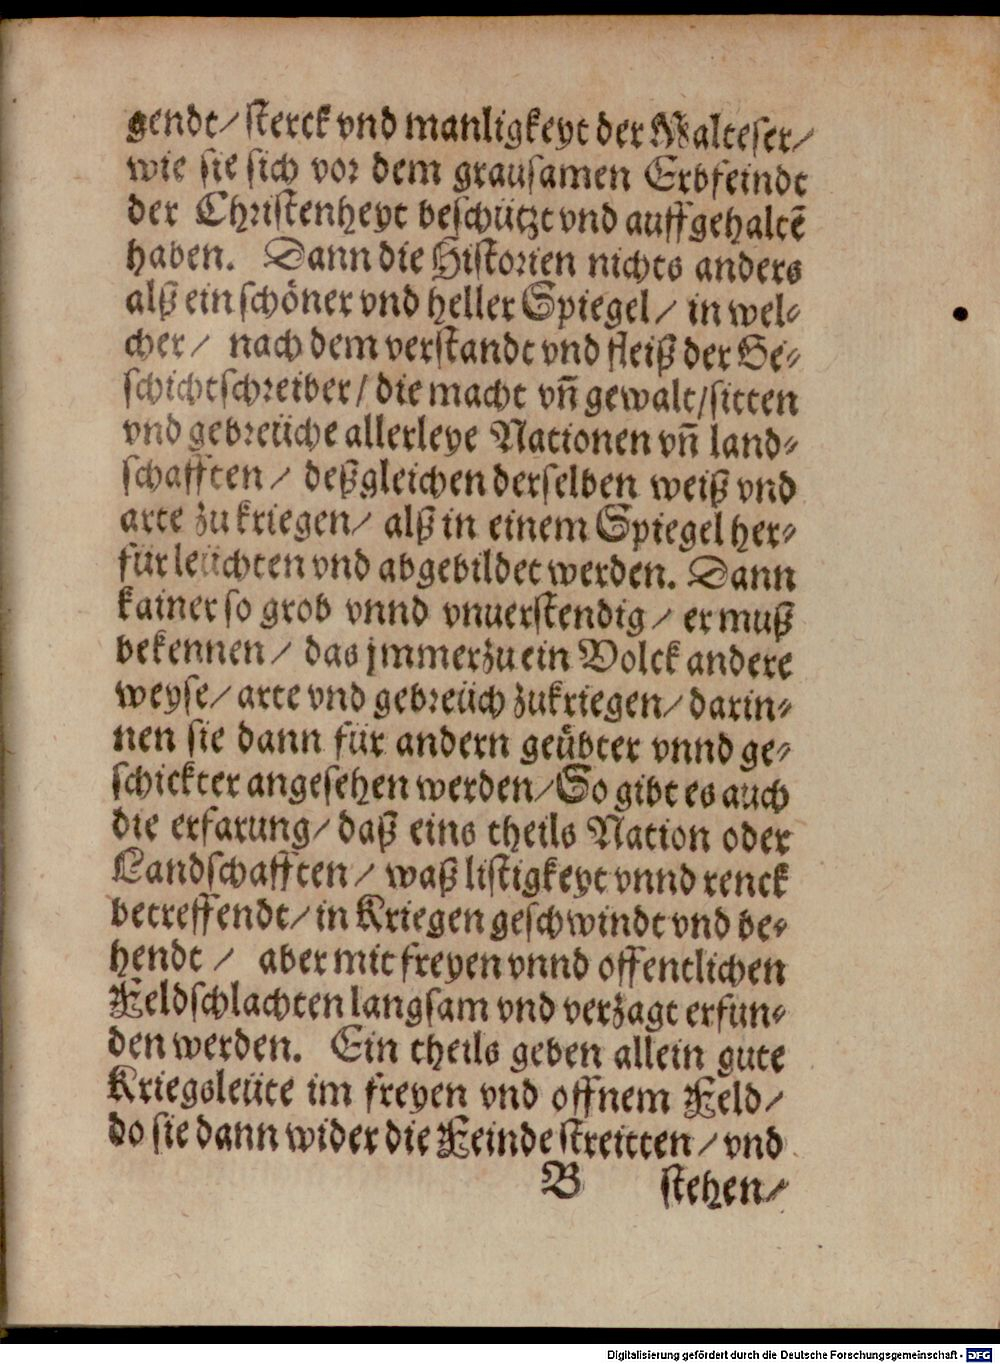 gendt/ sterck vnd manligkeyt der Malteser/
wie sie sich vor dem grausamen Erbfeindt
der Christenheyt beschützt vnd auffgehaltē
haben. Dann die Historien nichts anders
alß ein schöner vnd heller Spiegel/ in wel-
cher/ nach dem verstandt vnd fleiß der Ge-
schichtschreiber/ die macht vñ gewalt/ sitten
vnd gebreüche allerleye Nationen vñ land-
schafften/ deßgleichen derselben weiß vnd
arte zu kriegen/ alß in einem Spiegel her-
für leüchten vnd abgebildet werden. Dann
kainer so grob vnnd vnuerstendig/ er muß
bekennen/ das jmmerzu ein Volck andere
weyse/ arte vnd gebreüch zukriegen/ darin-
nen sie dann für andern geübter vnnd ge-
schickter angesehen werden/ So gibt es auch
die erfarung/ daß eins theils Nation oder
Landschafften/ waß listigkeyt vnnd renck
betreffendt/ in Kriegen geschwindt vnd be-
hendt/ aber mit freyen vnnd offentlichen
Feldschlachten langsam vnd verzagt erfun-
den werden. Ein theils geben allein gute
Kriegsleüte im freyen vnd offnem Feld/
do sie dann wider die Feinde streitten/ vnd
B stehen/
Digitalisierung gefördert durch die Deutsche Forschungsgemeinschaft - DFG